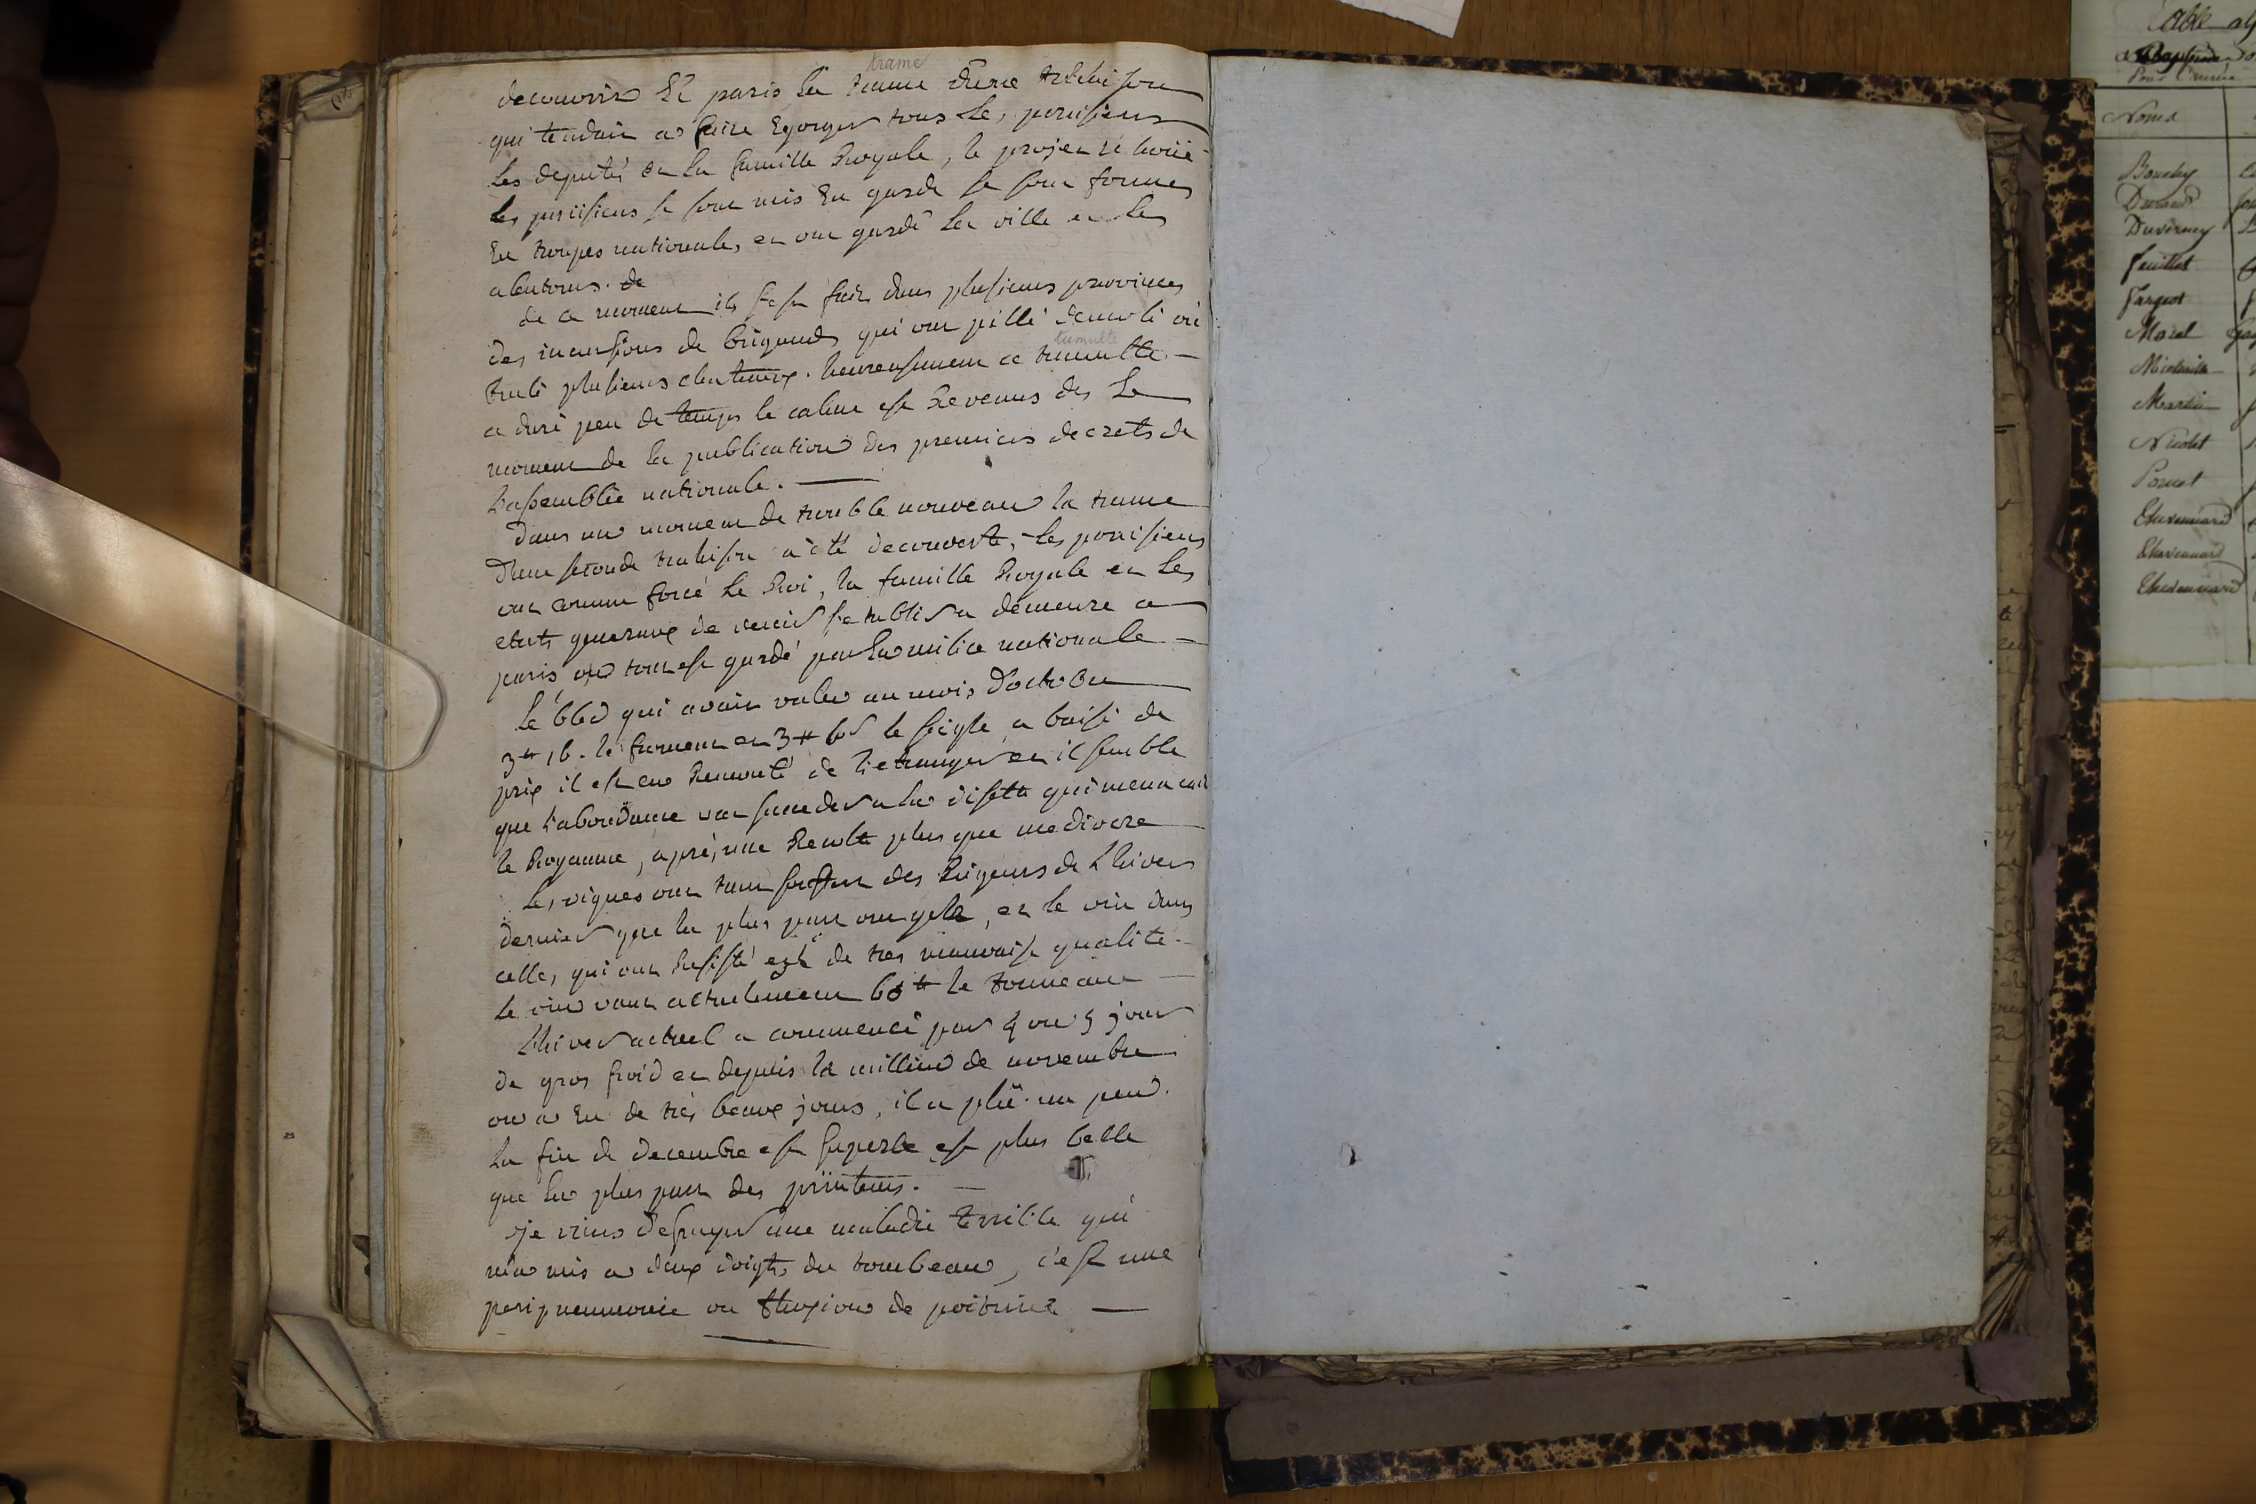 trame
decouvrir Et paris la trame d'une trahison
qui tendait a faire Egorger tous les parisiens
les deputés et la famille Royale, le projet
les parisiens se sont mis En garde se sont formes
En troupes nationale, et ont gardé la ville et les
alentours. de
de ce moment il s'est fait dans plusieurs provinces
des incursions de brigands qui ont pillé demoli où
tumulte
brulé plusieurs chateaux. heureusement ce tumulte
a duré peu de temps le calme est Revenus des Le
moment de la publication des premiers decrets de
L'assemblée nationale.
Dans un moment de trouble nouveau la trame
D'une seconde trahison a été decouverte, les parisiens
ont comme forcé Le Roi, la famille Royale et Les
etats generaux de venir s'etablir a demeure a
paris ou tout est gardé par la milice nationale
Le bled qui avait valu au mois d'octobre
3tt 16. le froment et 3tt le seigle a baissé de
prix il est en de l'etranger et il semble
que l'abondance va succeder a la disette qui menacait
le Royaume, aprés une Recolte plus que mediocre
Les vignes ont tant souffert des Rigeurs de L'hiver
dernier que la plus part ont gelé, et le vin dans
celles qui ont Resisté est de tres mauvaise qualité
Le vin vaut actuelement 60tt le tonneau
L'hiver actuel a commencé par 4 ou 5 jour
de gros froid et depuis le millieu de novembre
on a Eu de très beaux jours, il a plû un peu.
La fin de decembre est superbe est plus belle
que la plus part des printems.
je viens d'essuyer une maladie terrible qui
m'a mis a deux doigts du tombeau, c'est une
peripneumonie ou fluxion de poitrine
Table
Noms
Bouchy
Durand
Duvernay
feuillet
Fargeot
Morel
Martin
Nicolet
Pernet
Thevenard
Thevenard
Thevenard